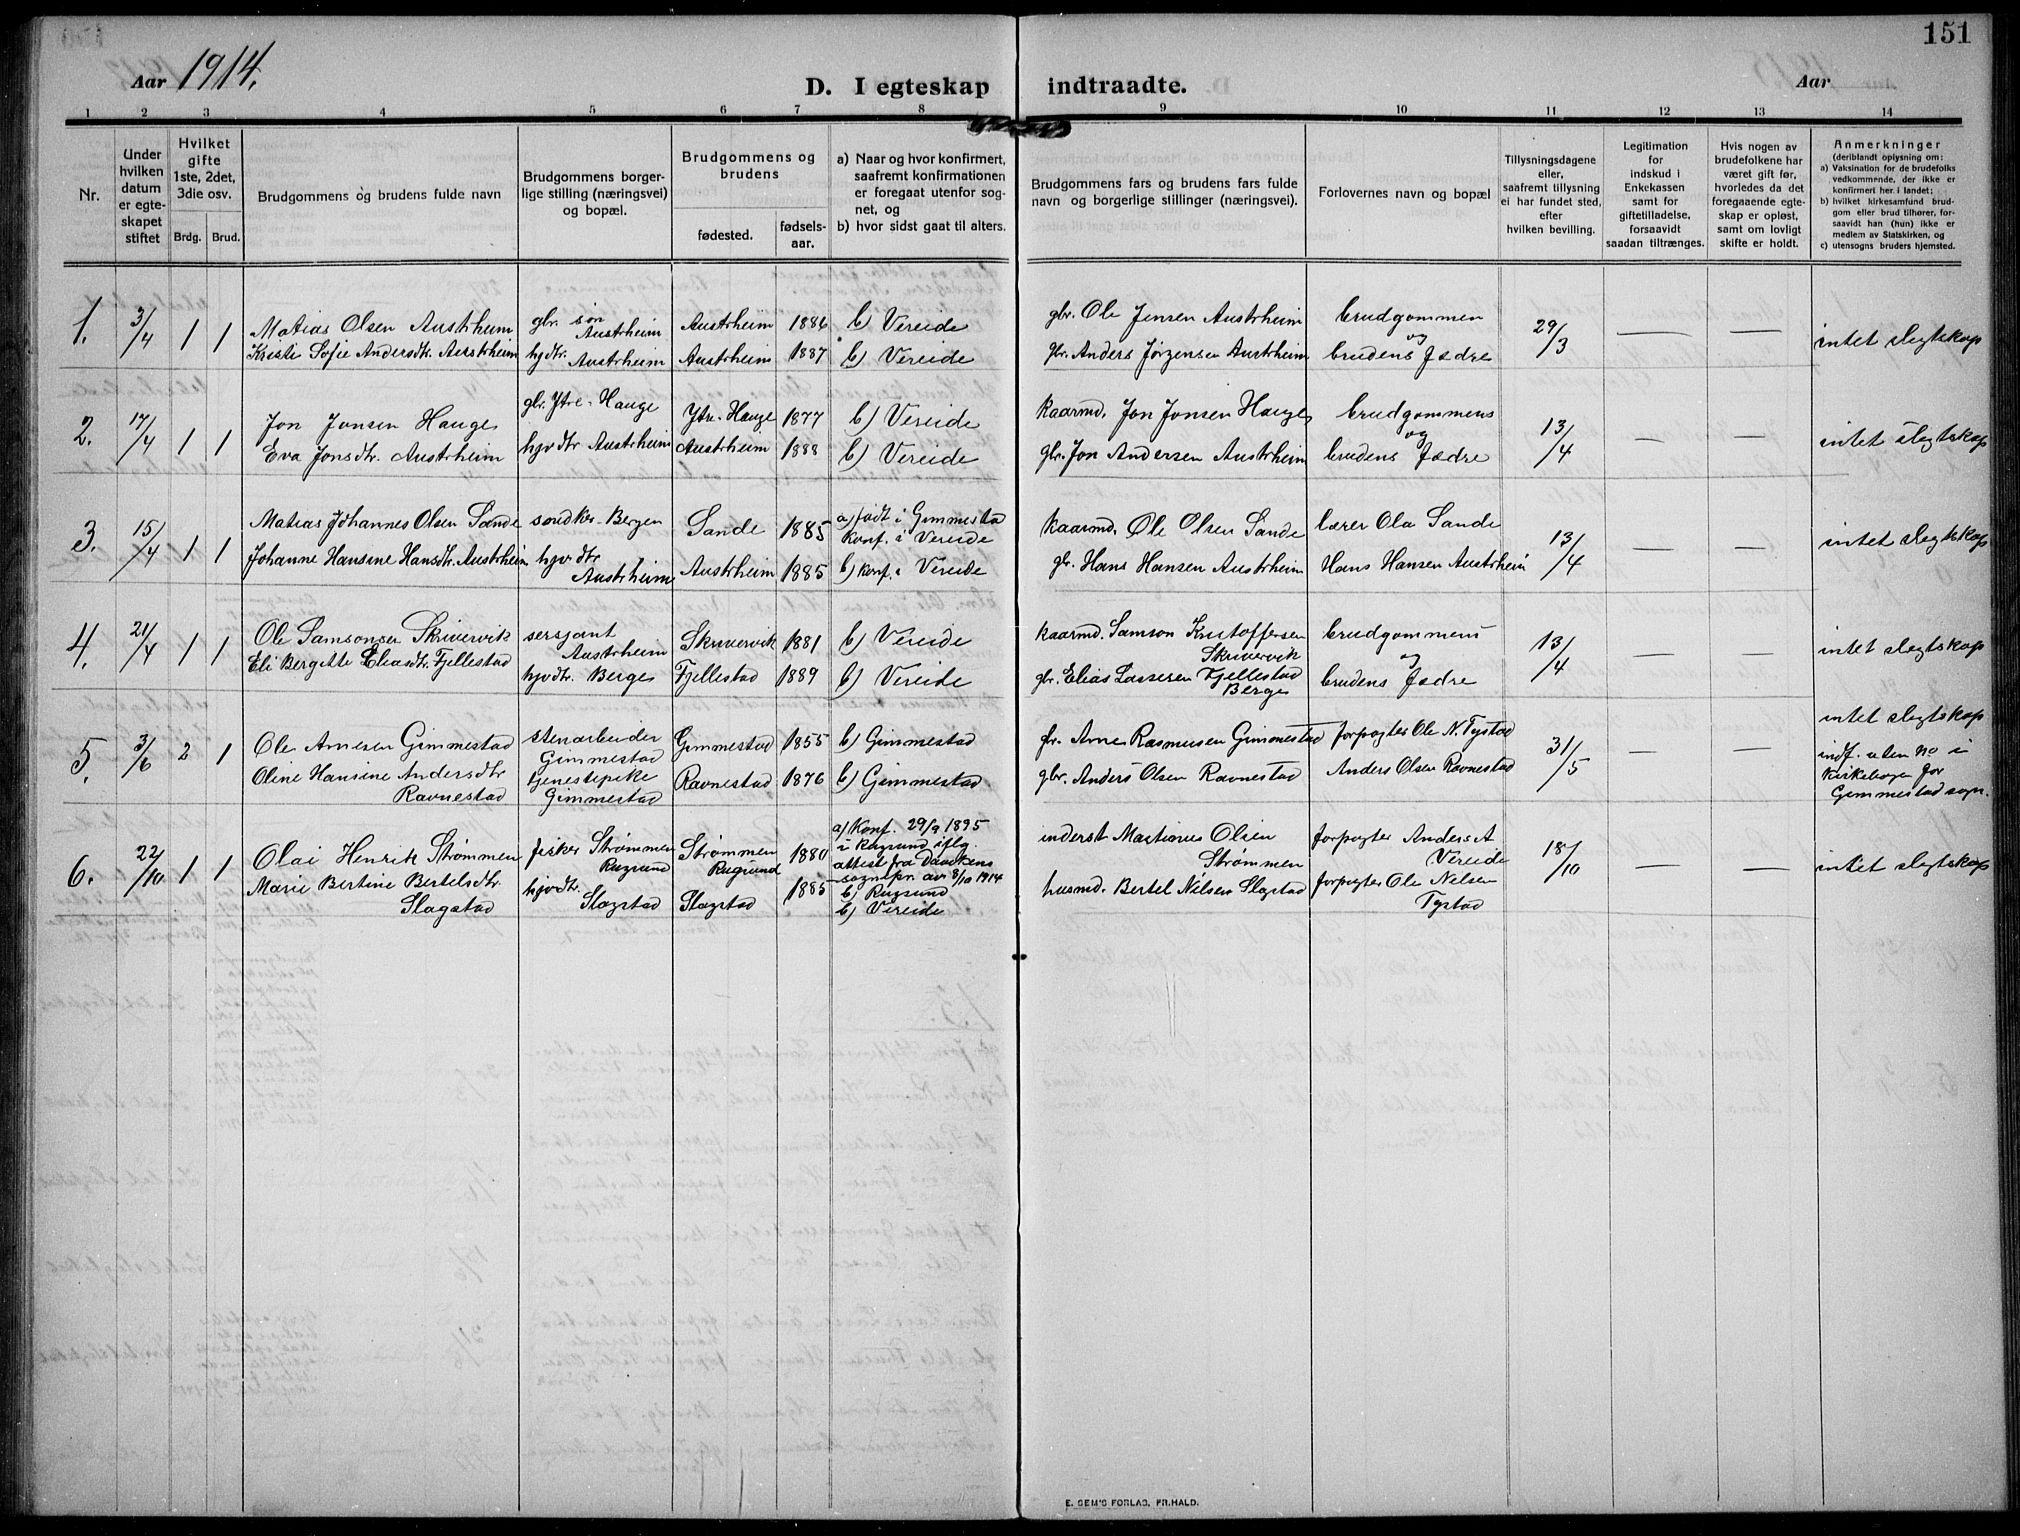 151
Aar 1914.
D. I egteskap indtraadte.
Aar
1 2 3 4 5 6 7 8 9 10 11 12 13 14
Nr.
Under hvilken datum er egteskapet stiftet
Hvilket gifte 1ste, 2det, 3die osv.
Brdg. Brud.
Brudgommens og brudens fulde navn
Brudgommens borgerlige stilling (næringsvei) og bopæl.
Brudgommens og brudens
fødested.
fødselsaar.
a) Naar og hvor konfirmert, saafremt konfirmationen er foregaat utenfor sognet, og
b) hvor sidst gaat til alters.
Brudgommens fars og brudens fars fulde navn og borgerlige stillinger (næringsvei).
Forlovernes navn og bopæl
Tillysningsdagene eller, saafremt tillysning ei har fundet sted, efter hvilken bevilling.
Legitimation for indskud i Enkekassen samt for giftetilladelse, forsaavidt saadan tiltrænges.
Hvis nogen av brudefolkene har været gift før, hvorledes da det foregaaende egteskap er opløst, samt om lovligt skifte er holdt.
Anmerkninger
(deriblandt oplysning om:
a) Vaksination for de brudefolks vedkommende, der ikke er konfirmert her i landet;
b) hvilket kirkesamfund brudgom eller brud tilhører, forsaavidt han (hun) ikke er medlem av Statskirken, og
c) utensogns bruders hjemsted.
1. 3/4 1 1 Matias Olsen Austrheim gbr. søn Austrheim Austrheim 1886 b) Vereide gbr. Ole Jensen Austrheim brudgommen og 29/3 — — intet slegtskap
Kristi Sofie Andersdtr. Austrheim hjdtr. Austrheim Austrheim 1887 b) Vereide gbr. Anders Jørgensen Austrheim brudens fædre
2. 17/4 1 1 Jon Jonsen Hauge gbr. Ytre-Hauge Ytre-Hauge 1877 b) Vereide kaarmd. Jon Jonsen Hauge brudgommens og 13/4 — — intet slegtskap
Eva Jonsdtr. Austrheim hjvdtr Austrheim Austrheim 1888 b) Vereide gbr. Jon Andersen Austrheim brudens fædre
3. 15/4 1 1 Matias Johannes Olsen Sande Bergen Sande 1885 a) født i Gimmestad konf. i Vereide kaarmd. Ole Olsen Sande lærer Ola Sande 13/4 — — intet slegtskap
Johanne Hansine Hansdtr. Austrheim hjvdtr. Austrheim Austrheim 1885 b) konf. i Vereide gbr. Hans Hansen Austrheim Hans Hansen Austrheim
4. 21/4 1 1 Ole Samsonsen Skrivervik sersjant Austrheim Skrivervik 1881 b) Vereide kaarmd. Samson Kristoffersen Skrivervik brudgommens og 13/4 — — intet slegtskap
Eli Bergitte Eliasdtr. Fjellestad hjvdtr. Berge Fjellestad 1889 b) Vereide gbr. Elias Lassesen Fjellestad Berge brudens fædre
5. 3/6 2 1 Ole Arnesen Gimmestad stenarbeider Gimmestad Gimmestad 1855 b) Gimmestad fr. Arne Rasmusen Gimmestad forpagter Ole N. Tystad 31/5 — — intet slegtskap
Oline Hansine Andersdtr Ravnestad tjenestepike Gimmestad Ravnestad 1876 b) Gimmestad gbr. Anders Olsen Ravnestad Anders Olsen Ravnestad indf. uten no i kirkebogen for Gimmestad sogn.
6. 22/10 1 1 Olai Henrik Strømmen fisker Strømmen Rugsund Strømmen Rugsund 1880 a) Konf. 29/9 1895 i Rugsund iflg. attest fra Daviken sognepr. av 8/10 1914 b) Rugsund inderst Martinus Olsen Strømmen forpagter Anders A Vereide 18/10 — — intet slegtskap
Marie Bertine Bertelsdtr. Slagstad hjvdtr. Slagstad Slagstad 1885 b) Vereide husmd. Bertel Nilsen Slagstad forpagter Ole Nelsen Tystad
E. SEM'S FORLAG, FR.HALD.